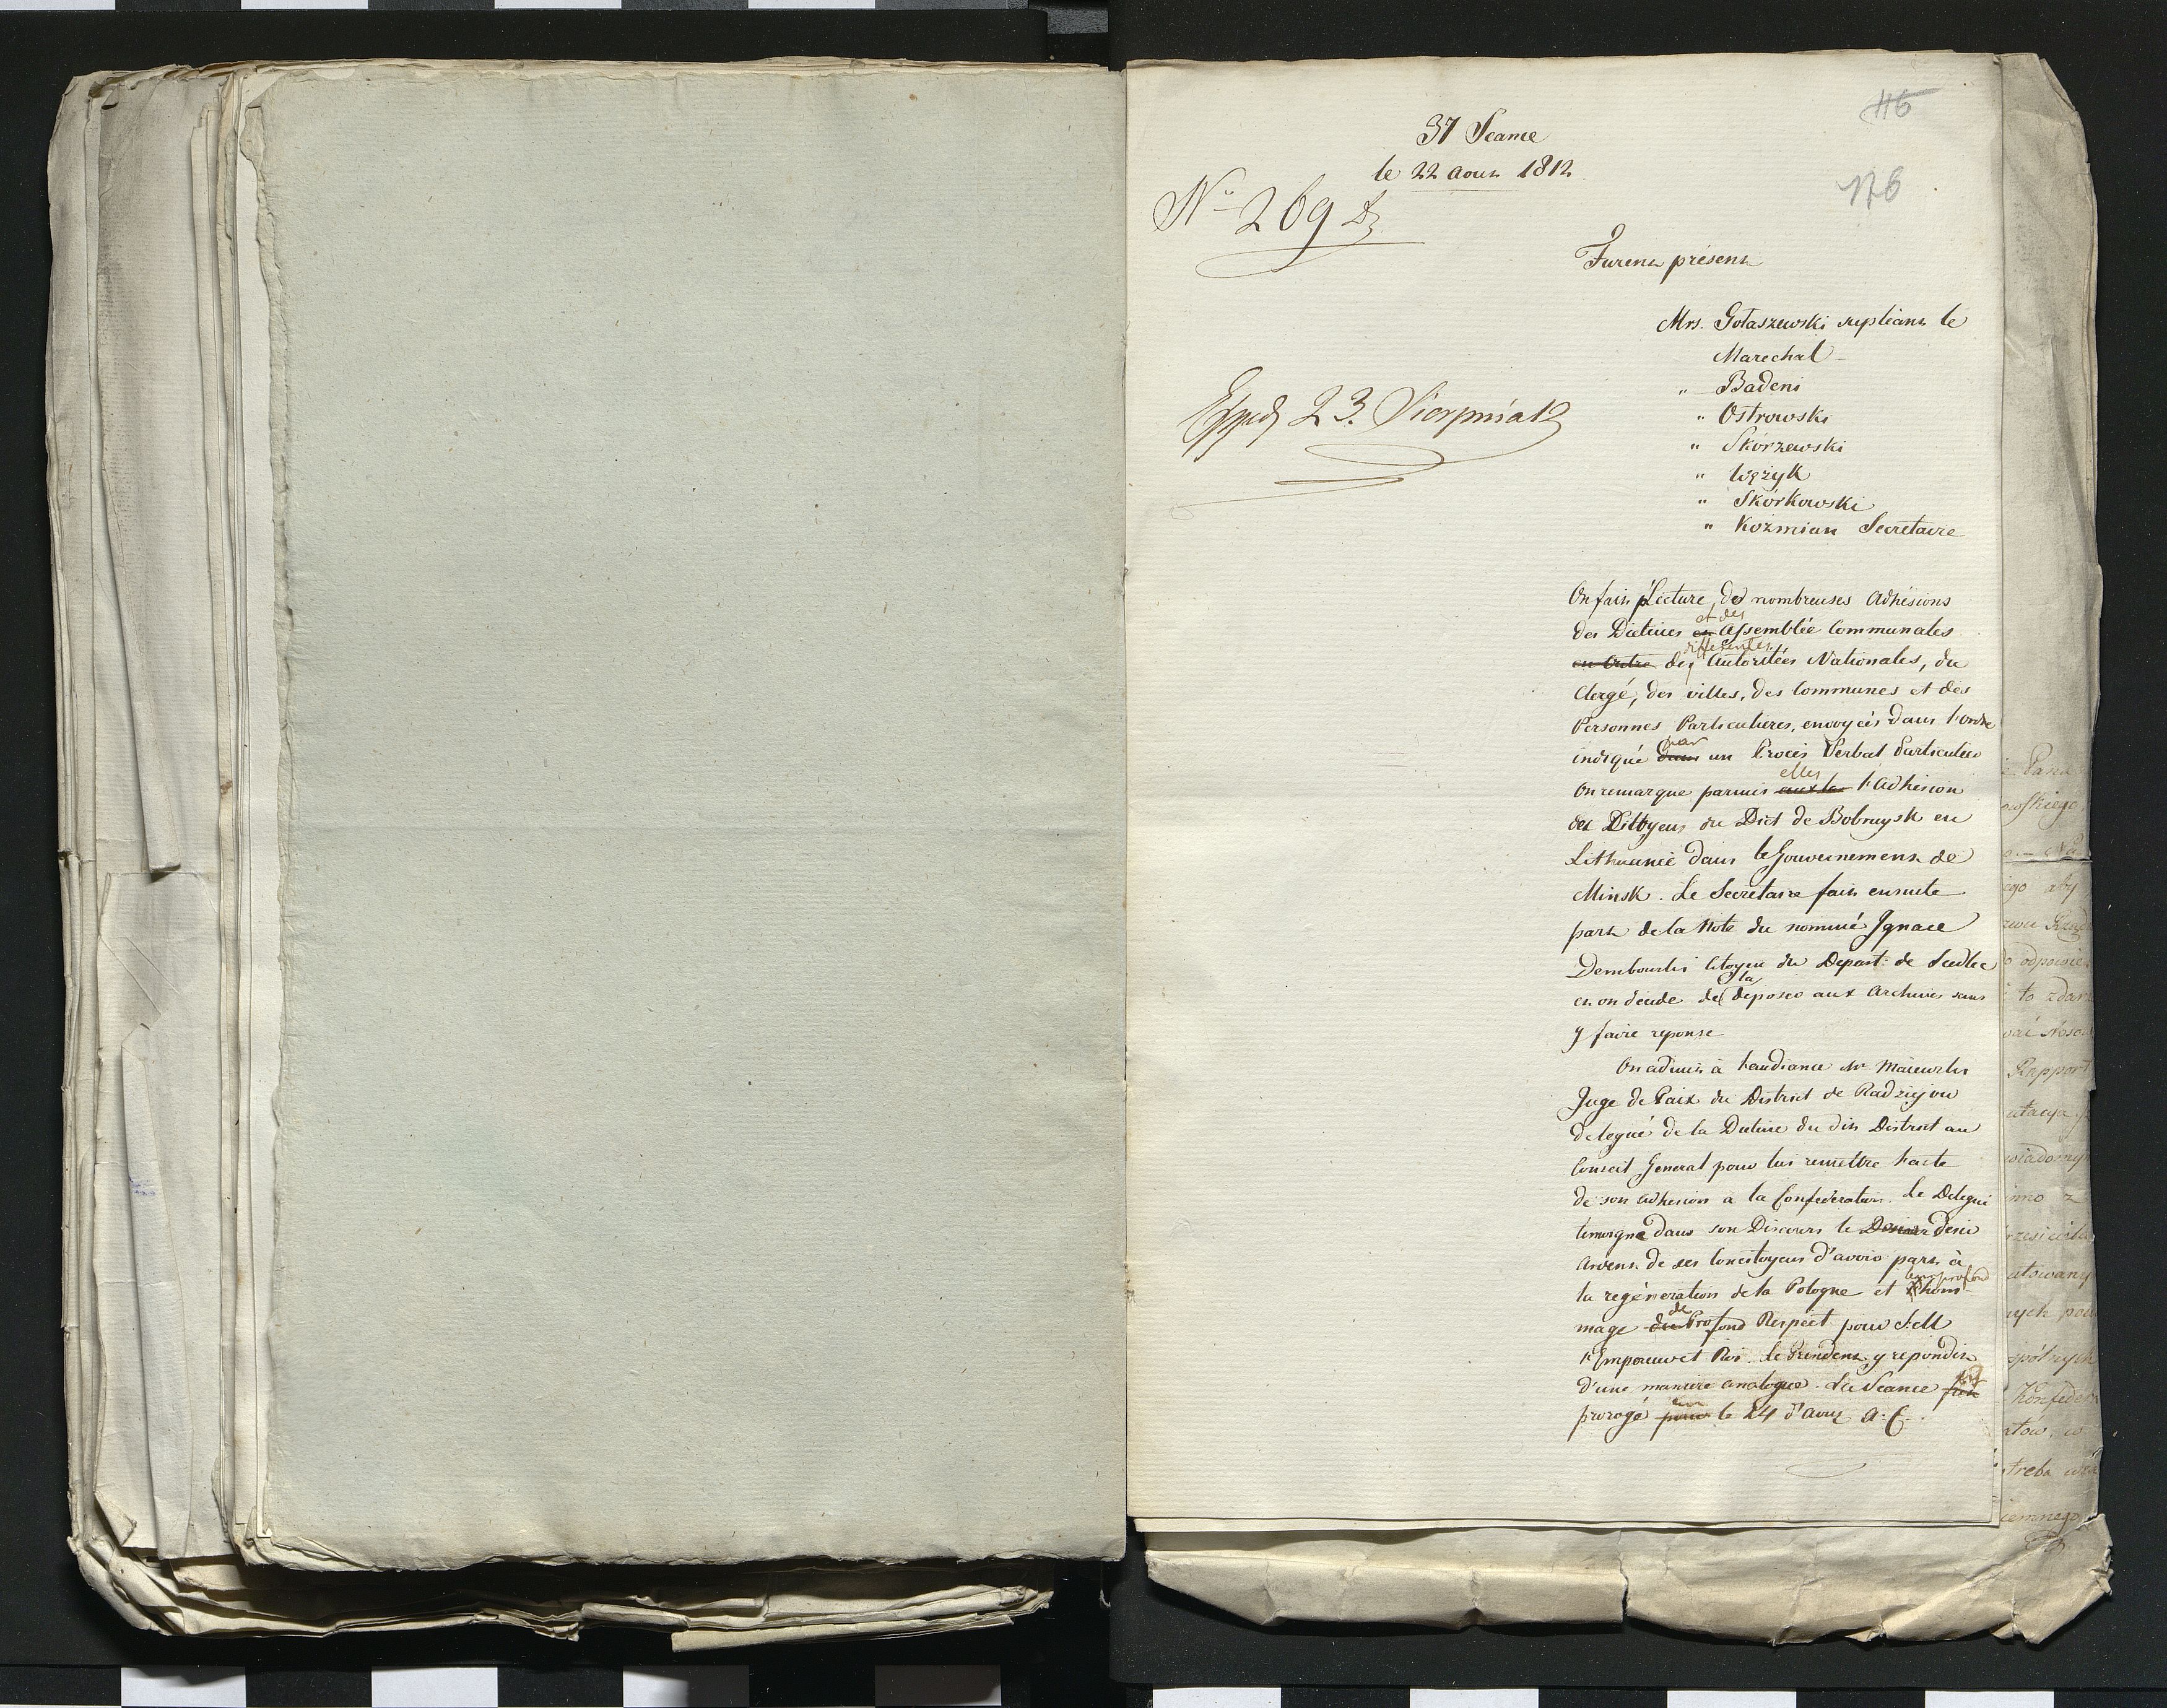 116
37 Seance
le 22 aout 1812
176
No 269 Dz
Furent présent
Mrs. Gołaszewski supleant le
Marechal
" Badeni
" Ostrowski
" Skórzewski
" Wężyk
" Skórkowski
" Koźmian Secretaire
Expd 23. Sierpnia 12
On fait Lecture, des nombreuses Adhésions
des Dietines et des Assemblée Communales
en outre des differentes Autoritées Nationales, du
Clergé, des villes, des Communes et des
Personnes Particulieres, envoyées dans l'ordre
indiqué dans par un Procès Verbal Particulier
On remarque parmis elles l'Adhesion
des Citoyens du Dist de Bobruysk en
Lithuanie dans le Gouvernement de
Minsk. Le Secretaire fait ensuite
part de la Note du nommé Ignace
Dembowski Citoyen du Depart: de Siedlec
et on decide de la deposer aux Archives sans
y faire reponse
On admit à l'audiance Mr Maiewski
Juge de Paix du District de Radziejow
delegué de la Dietine du dit District au
Conseil General pour lui remettre l'acte
de son adhesion a la Confederation. Le Delegué
temoigne dans son Discours le desir
Ardent de ses Concitoyens d'avoir part à
la regéneration de la Pologne et leur profond hom-
mage du de Profond Respect pour S. M
l'Empereur et Roi. Le President y repondit
d'une maniere analogue. La Seance fut
prorogé pour au le 24 d'Aout a. c.